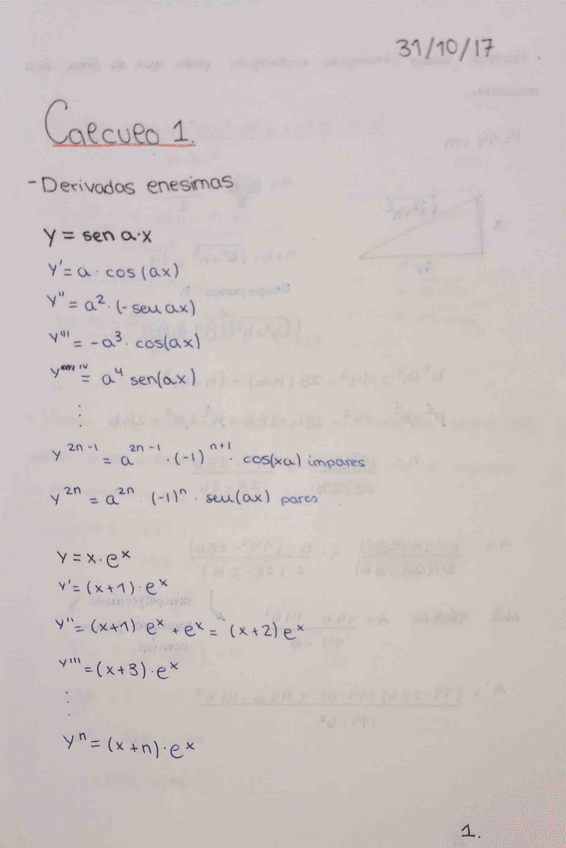 31/10/17
Calculo 1.
- Derivadas enesimas
y = sen a·x
y' = a · cos (ax)
y'' = a² · (-seu ax)
y''' = -a³ · cos(ax)
y^IV = a⁴ sen(ax)
⋮
y^2n-1 = a^2n-1 · (-1)^n+1 · cos(xa) impares
y^2n = a^2n · (-1)^n · seu(ax) pares
y = x · e^x
y' = (x+1) · e^x
y'' = (x+1) · e^x + e^x = (x+2) e^x
y''' = (x+3) · e^x
⋮
y^n = (x+n) · e^x
1.